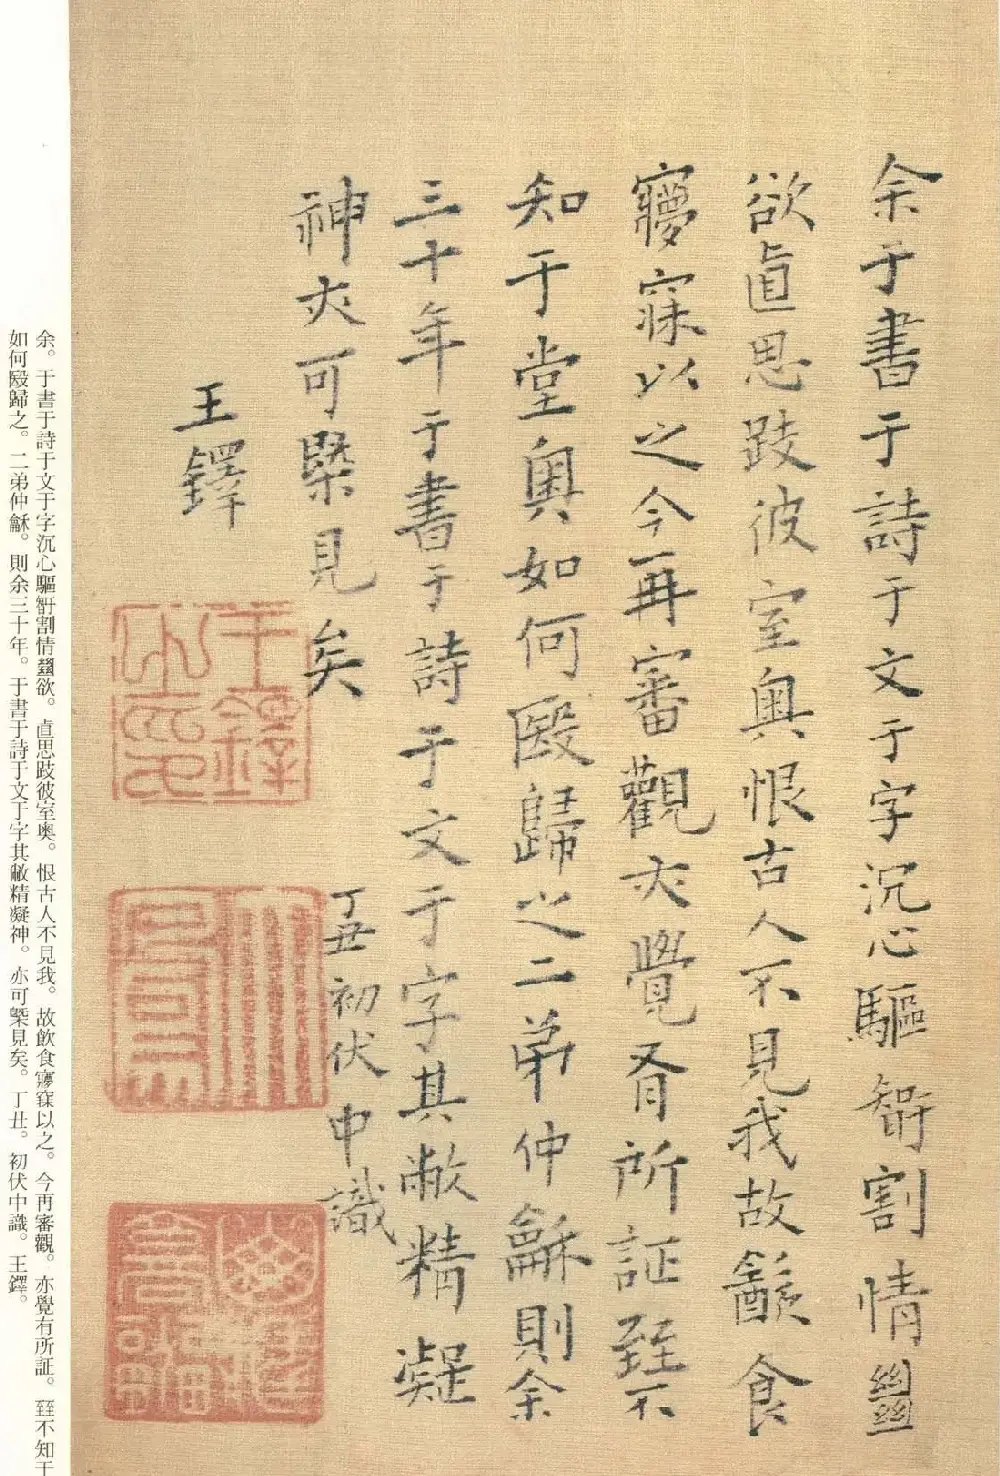 余于書于詩于文于字沉心驅智割情𢇇
欲直思跂彼室奥恨古人不見我故㱃食
寢寐以之今再審觀亦覺有所証臸不
知于堂奧如何毆歸之二弟仲龢則余
三十年于書于詩于文于字其敝精凝
神亦可槩見矣
丁丑初伏中識
王鐸
王鐸之印
余。于書于詩于文于字沉心驅智割情𢇇欲。直思跂彼室奥。恨古人不見我。故飲食寢寐以之。今再審觀。亦覺有所証。臸不知于
如何毆歸之。二弟仲龢。則余三十年。于書于詩于文于字其敝精凝神。亦可槩見矣。丁丑。初伏中識。王鐸。